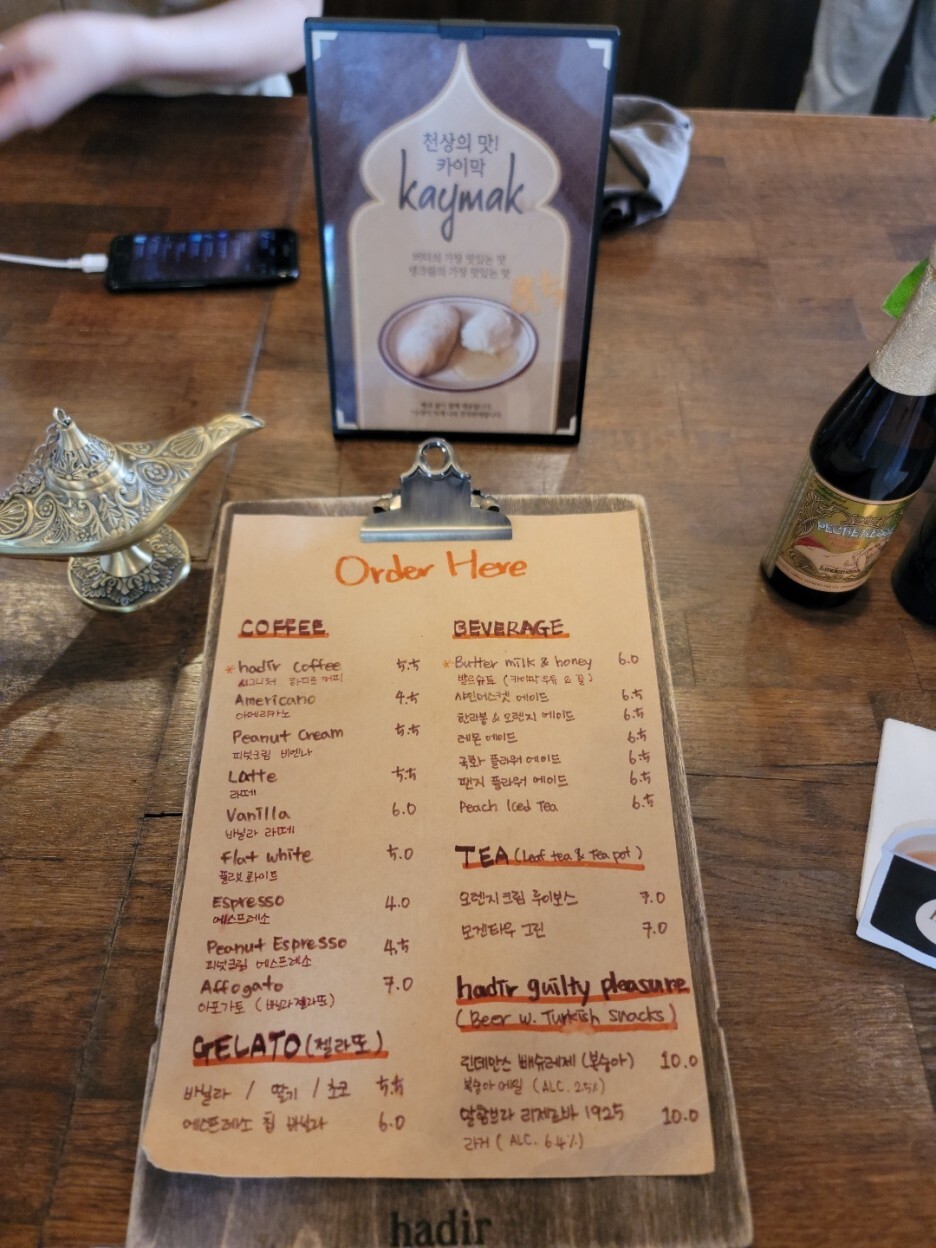 천상의 맛!
카이막
kaymak
버터의 가장 맛있는 맛
생크림의 가장 맛있는 맛
Order Here
COFFEE
*hadir coffee 5.5
시그니처 하디르 커피
Americano 4.5
아메리카노
Peanut Cream 5.5
피넛크림 비엔나
Latte 5.5
라떼
Vanilla 6.0
바닐라 라떼
Flat white 5.0
플랫 화이트
Espresso 4.0
에스프레소
Peanut Espresso 4.5
피넛크림 에스프레소
Affogato 7.0
아포가토 (바닐라젤라또)
GELATO (젤라또)
바닐라 / 딸기 / 초코 5.5
에스프레소 칩 바닐라 6.0
BEVERAGE
*Butter milk & honey 6.0
발르슈트 (카이막우유 & 꿀)
샤인머스켓 에이드 6.5
한라봉 & 오렌지 에이드 6.5
레몬 에이드 6.5
국화 플라워 에이드 6.5
팬지 플라워 에이드 6.5
Peach Iced Tea 6.5
TEA (Leaf tea & Tea pot)
오렌지크림 루이보스 7.0
보겐타우 그린 7.0
hadir guilty pleasure
(Beer w. Turkish snacks)
린데만스 뻬슈레제 (복숭아) 10.0
복숭아 에일 (ALC. 2.5%)
알함브라 리제르바 1925 10.0
라거 (ALC. 6.4%)
hadir